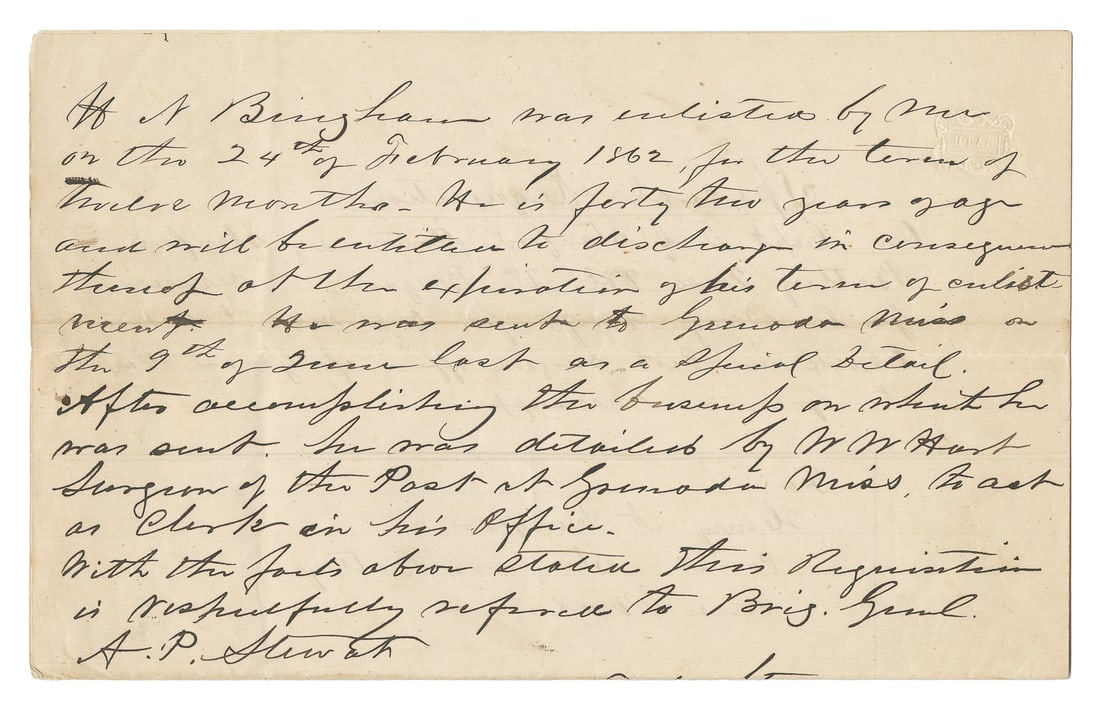 H N Bingham was enlisted by me
on the 24th of February 1862, for the term of
twelve months - He is forty two years of age
and will be entitled to discharge in consequence
thereof at the expiration of his term of enlist
ment. He was sent to Grenada Miss on
the 9th of June last as a Special Detail.
After accomplishing the business on which he
was sent. he was detailed by W W Hart
Surgeon of the Post at Grenada Miss, to act
as Clerk in his Office.
With the facts above stated this Requisition
is respectfully refered to Brig. Genl.
A. P. Stewart